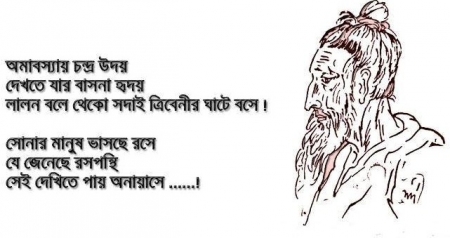 অমাবস্যায় চন্দ্র উদয়
দেখতে যার বাসনা হৃদয়
লালন বলে থেকো সদাই ত্রিবেনীর ঘাটে বসে !
সোনার মানুষ ভাসছে রসে
যে জেনেছে রসপন্থি
সেই দেখিতে পায় অনায়াসে ......!